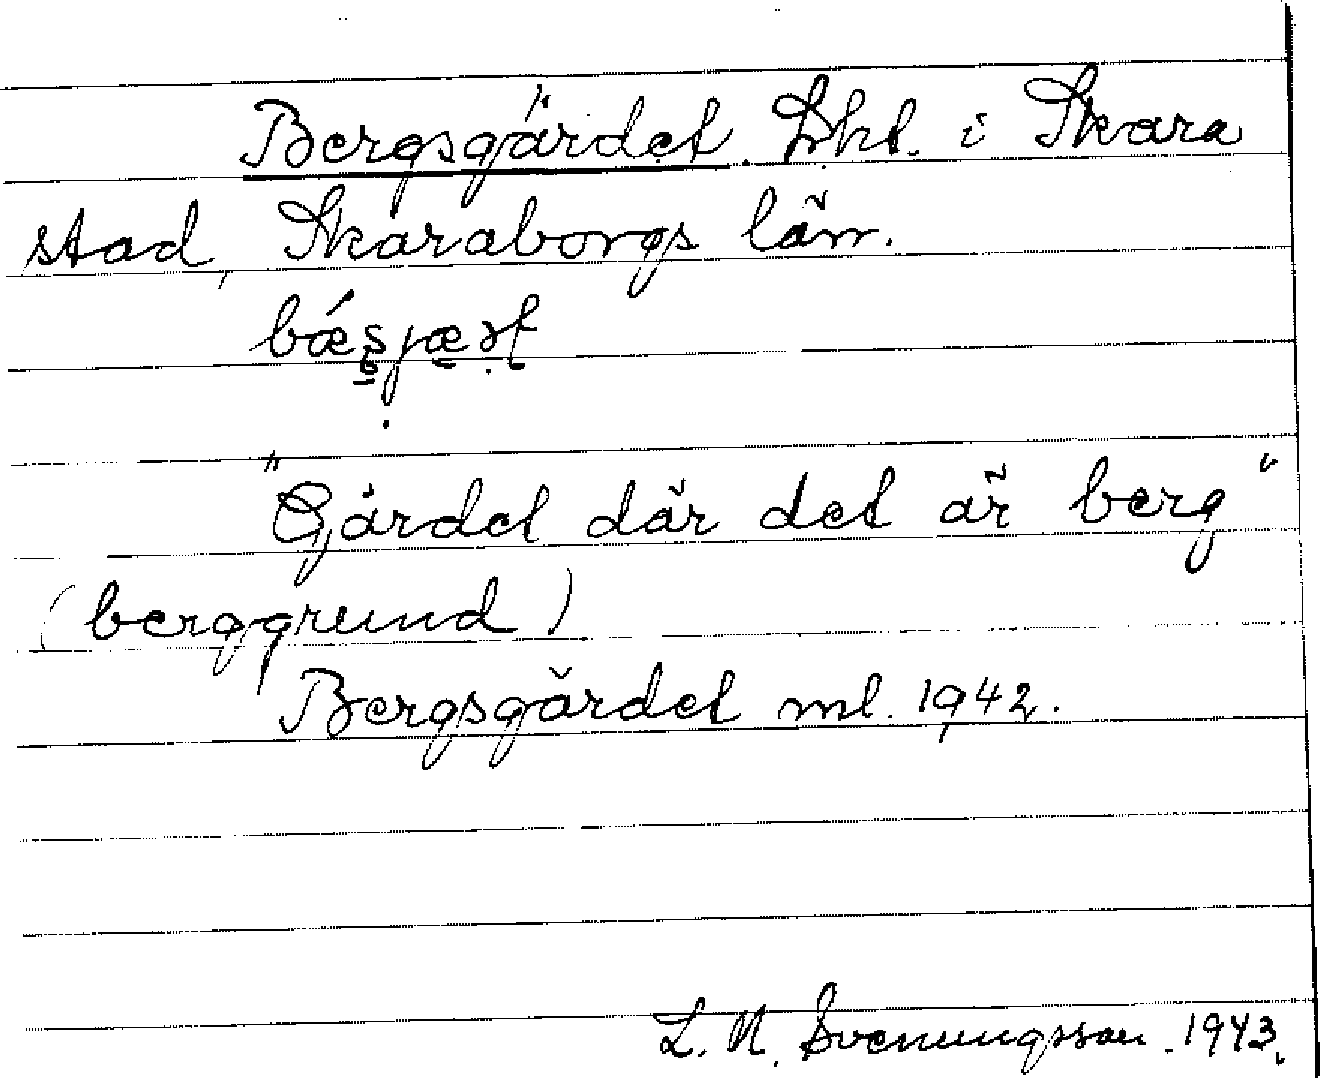 Bergsgärdet. Lht. i Skara
stad, Skaraborgs län.
bǽʂjæɽt
"Gärdet där det är berg"
(berggrund)
Bergsgärdet ml. 1942.
L. N. Svenungsson. 1943.